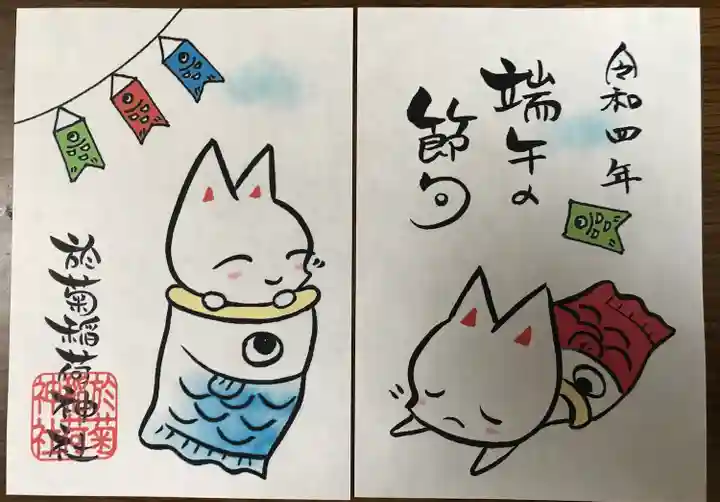 令和四年
端午の
節句
於菊稲荷神社
於菊
稲荷
神社